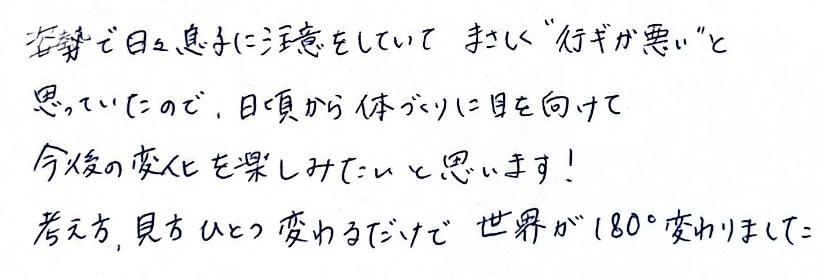 姿勢で日々息子に注意をしていて まさしく"行ギが悪い"と
思っていたので、日頃から体づくりに目を向けて
今後の変化を楽しみたいと思います!
考え方、見方ひとつ変わるだけで 世界が180°変わりました